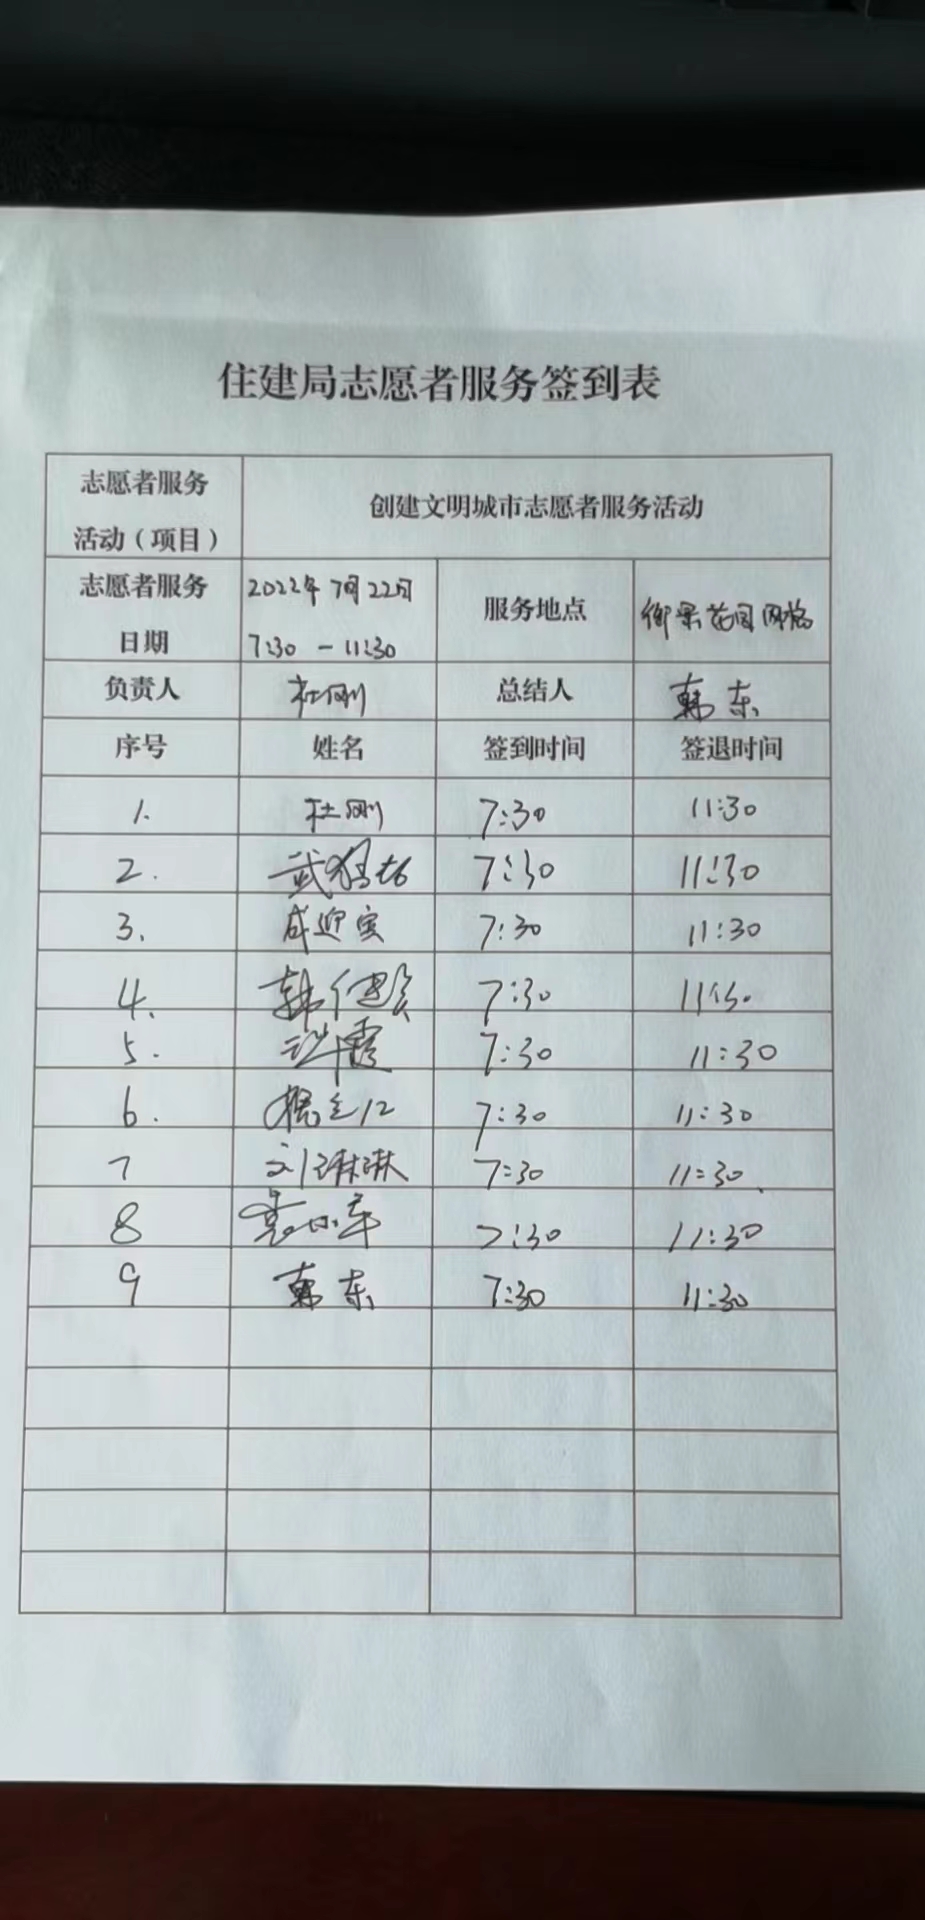 住建局志愿者服务签到表
志愿者服务
活动（项目）
创建文明城市志愿者服务活动
志愿者服务
日期
2022年7月22日
7:30 - 11:30
服务地点
花园网格
负责人 杜刚 总结人 韩东
序号 姓名 签到时间 签退时间
1. 杜刚 7:30 11:30
2. 武 7:30 11:30
3. 成迎宾 7:30 11:30
4. 韩 7:30 11:30
5. 许霞 7:30 11:30
6. 7:30 11:30
7 刘琳琳 7:30 11:30
8 袁小军 7:30 11:30
9 韩东 7:30 11:30